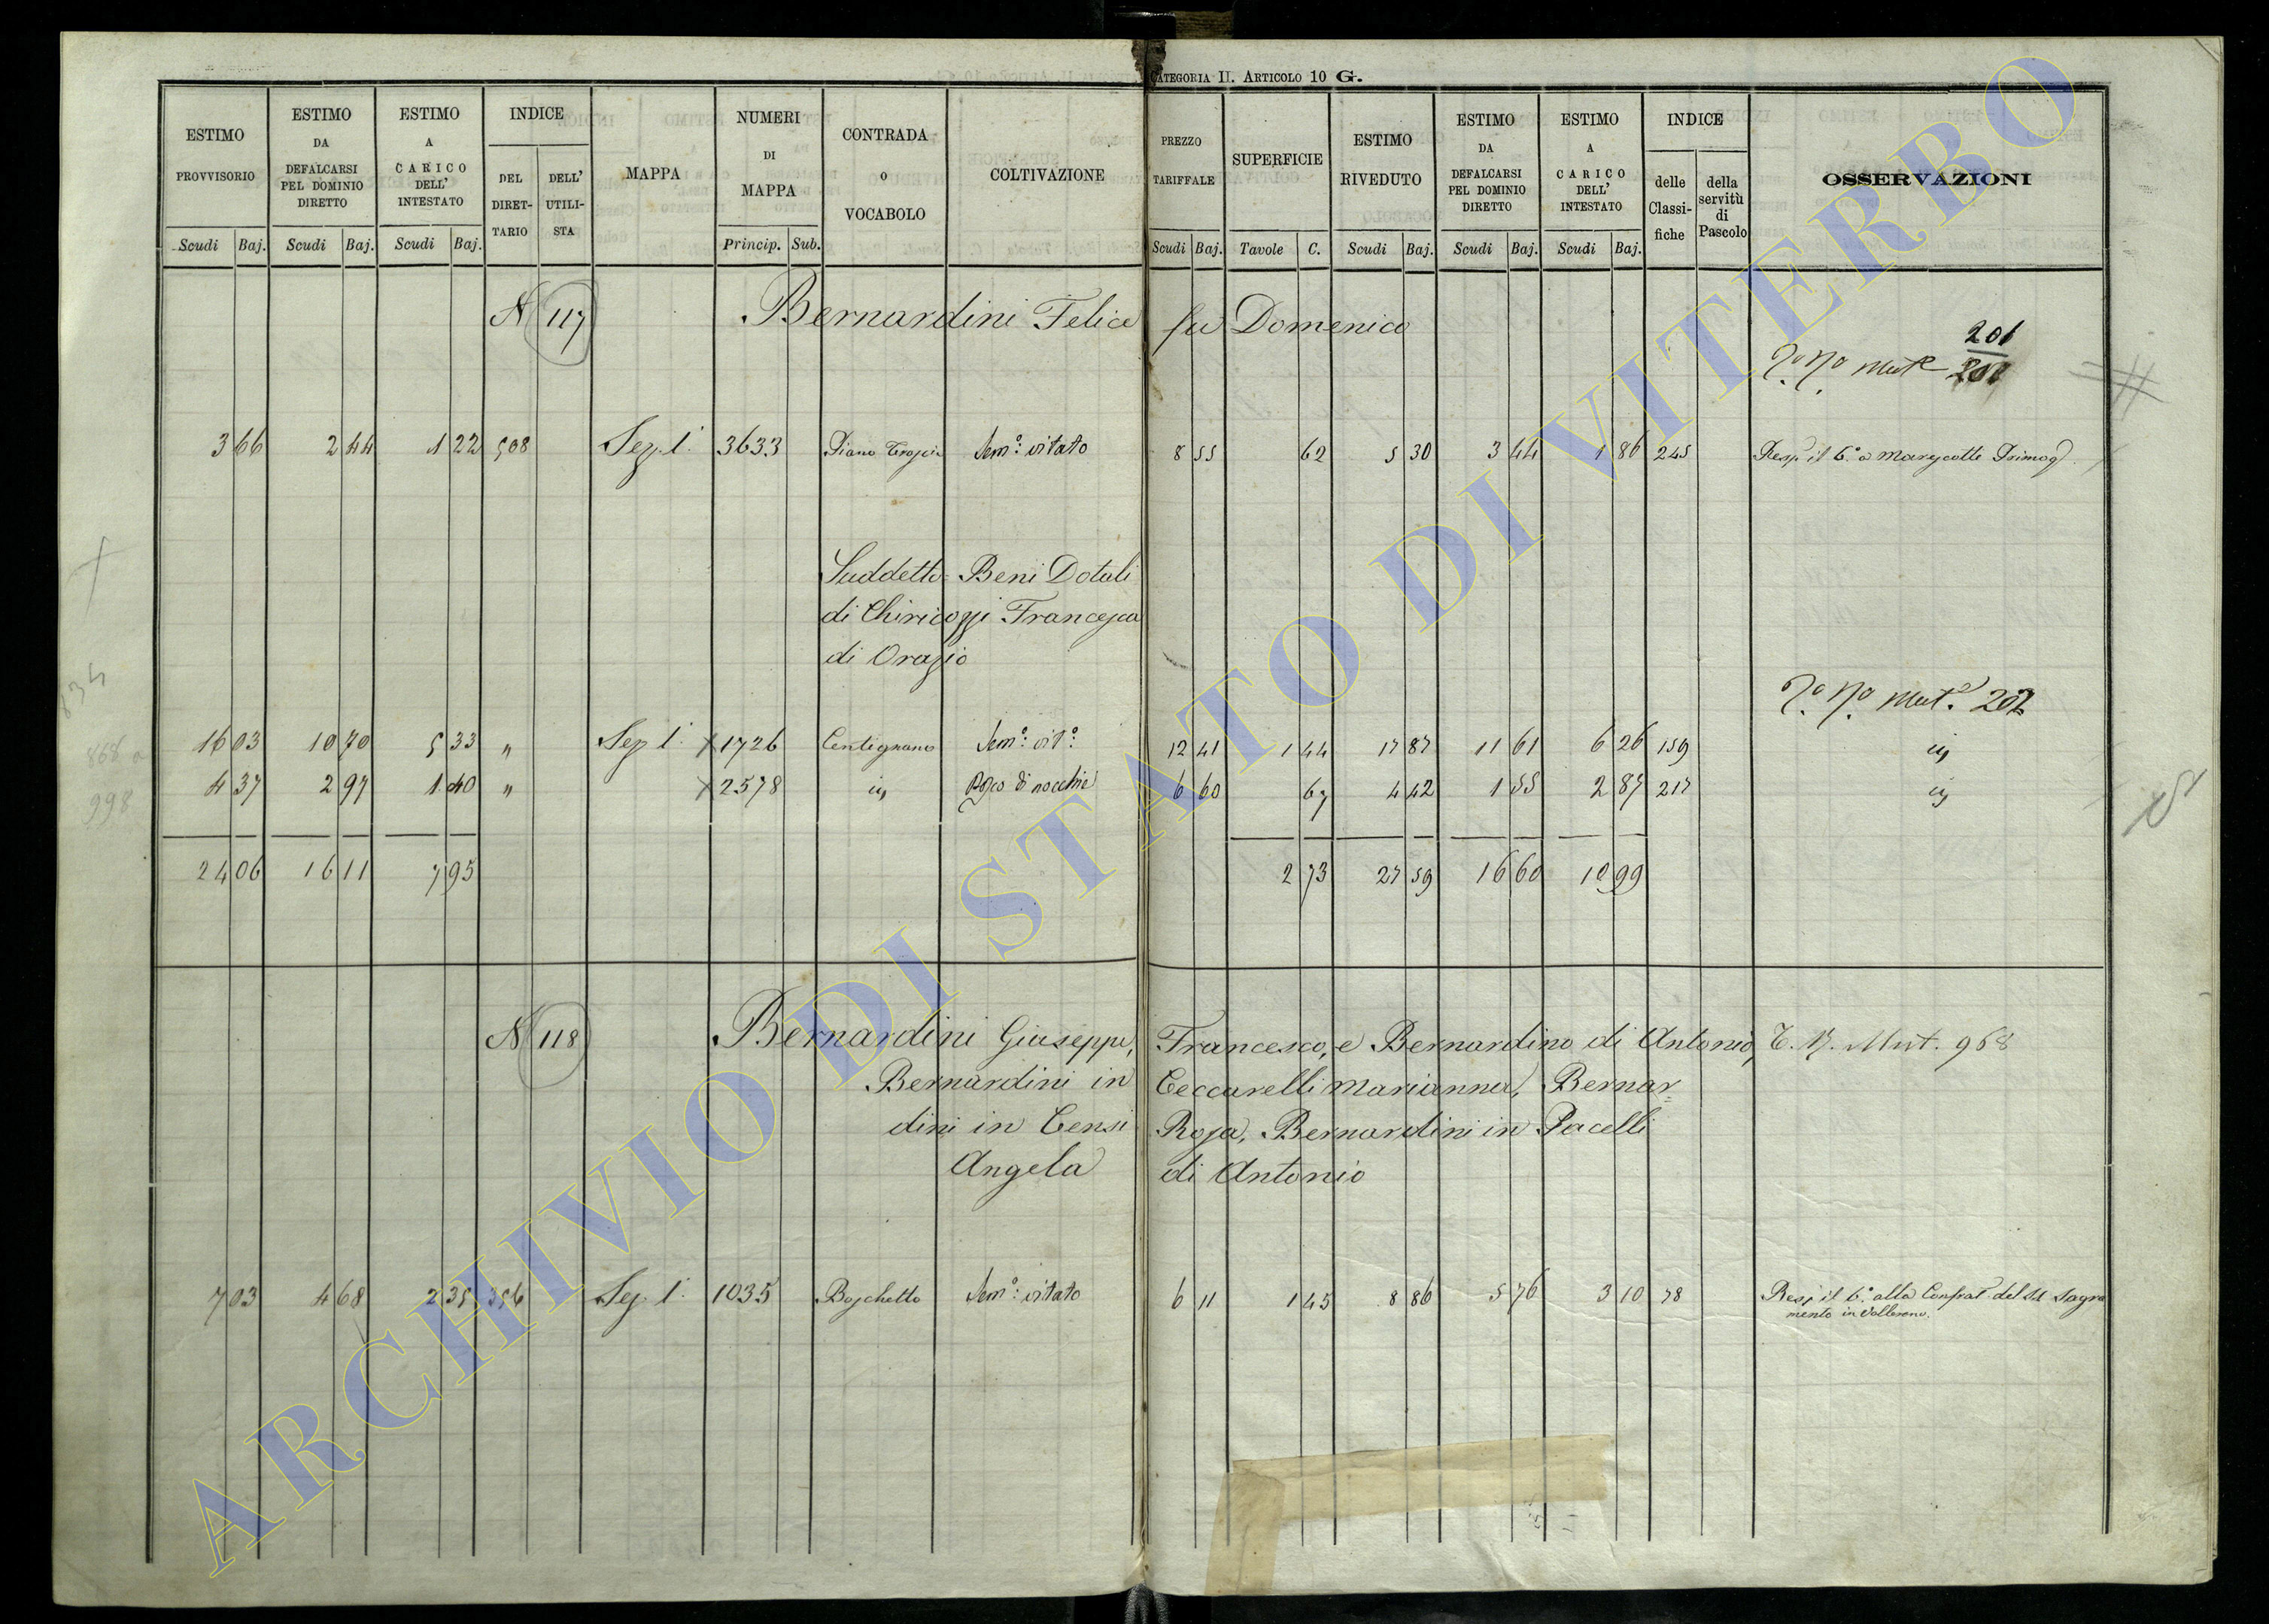 CATEGORIA II. ARTICOLO 10 G.
ESTIMO PROVVISORIO Scudi Baj. ESTIMO DA DEFALCARSI PEL DOMINIO DIRETTO Scudi Baj. ESTIMO A CARICO DELL' INTESTATO Scudi Baj. INDICE DEL DIRETTARIO DELL' UTILISTA MAPPA NUMERI DI MAPPA Princip. Sub. CONTRADA O VOCABOLO COLTIVAZIONE
PREZZO TARIFFALE Scudi Baj. SUPERFICIE Tavole C. ESTIMO RIVEDUTO Scudi Baj. ESTIMO DA DEFALCARSI PEL DOMINIO DIRETTO Scudi Baj. ESTIMO A CARICO DELL' INTESTATO Scudi Baj. INDICE delle Classifiche della servitù di Pascolo OSSERVAZIONI
N 117 Bernardini Felice fu Domenico
201
201
3 66 2 44 1 22 508 Sez. 1. 3633 Piano Sem.° vitato 8 55 62 5 30 3 44 1 86 245 Resp. il 6.° a Marescotti Primog
Suddetto = Beni Dotali
di Chiricozzi Francesca
di Orazio
Mut. 202
16 03 10 70 5 33 " Sez 1. 1726 Centignano Sem.° vit.° 12 41 1 44 17 87 11 61 6 26 159
4 37 2 97 1 40 " 2578 Bosco di nocchie 6 60 67 4 42 1 55 2 87 217
24 06 16 11 7 95 2 73 27 59 16 60 10 99
834
868
998
N 118 Bernardini Giuseppe, Francesco, e Bernardino di Antonio, T. N. Mut. 968
Bernardini in Ceccarelli Marianna, Bernar=
dini in Censi Rosa, Bernardini in Pacelli
Angela di Antonio
7 03 4 68 2 35 356 Sez 1. 1035 Boschetto Sem.° vitato 6 11 1 45 8 86 5 76 3 10 78 Resp il 6.° alla Confrat. del SS Sagra
mento in Vallerano.
ARCHIVIO DI STATO DI VITERBO